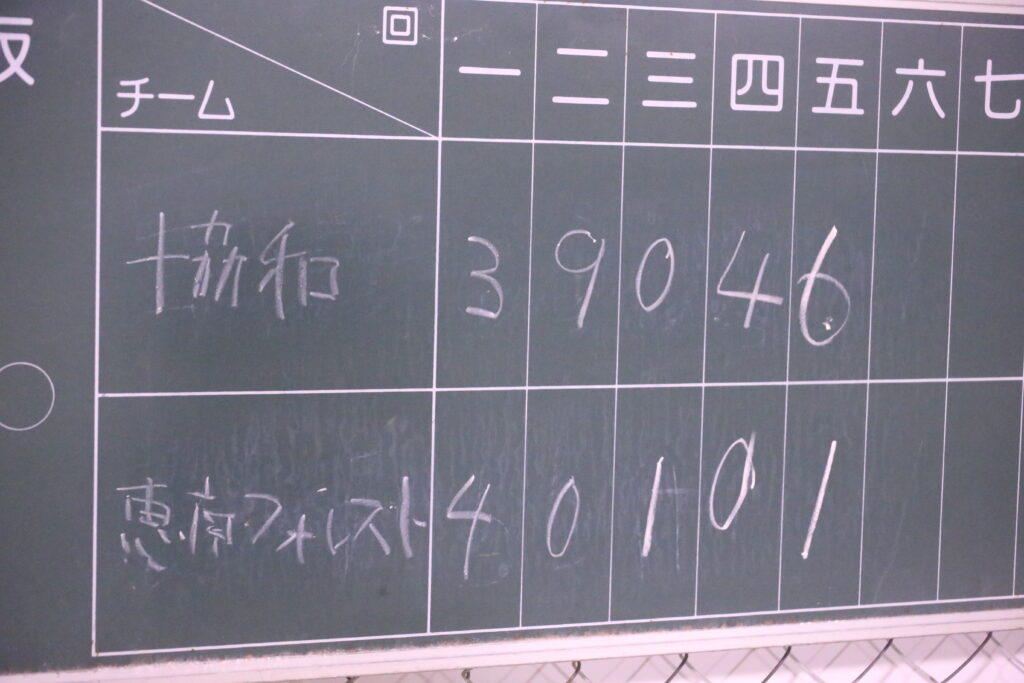 回
チーム 一 二 三 四 五 六 七
協和 3 9 0 4 6
恵南フォレスト 4 0 1 0 1